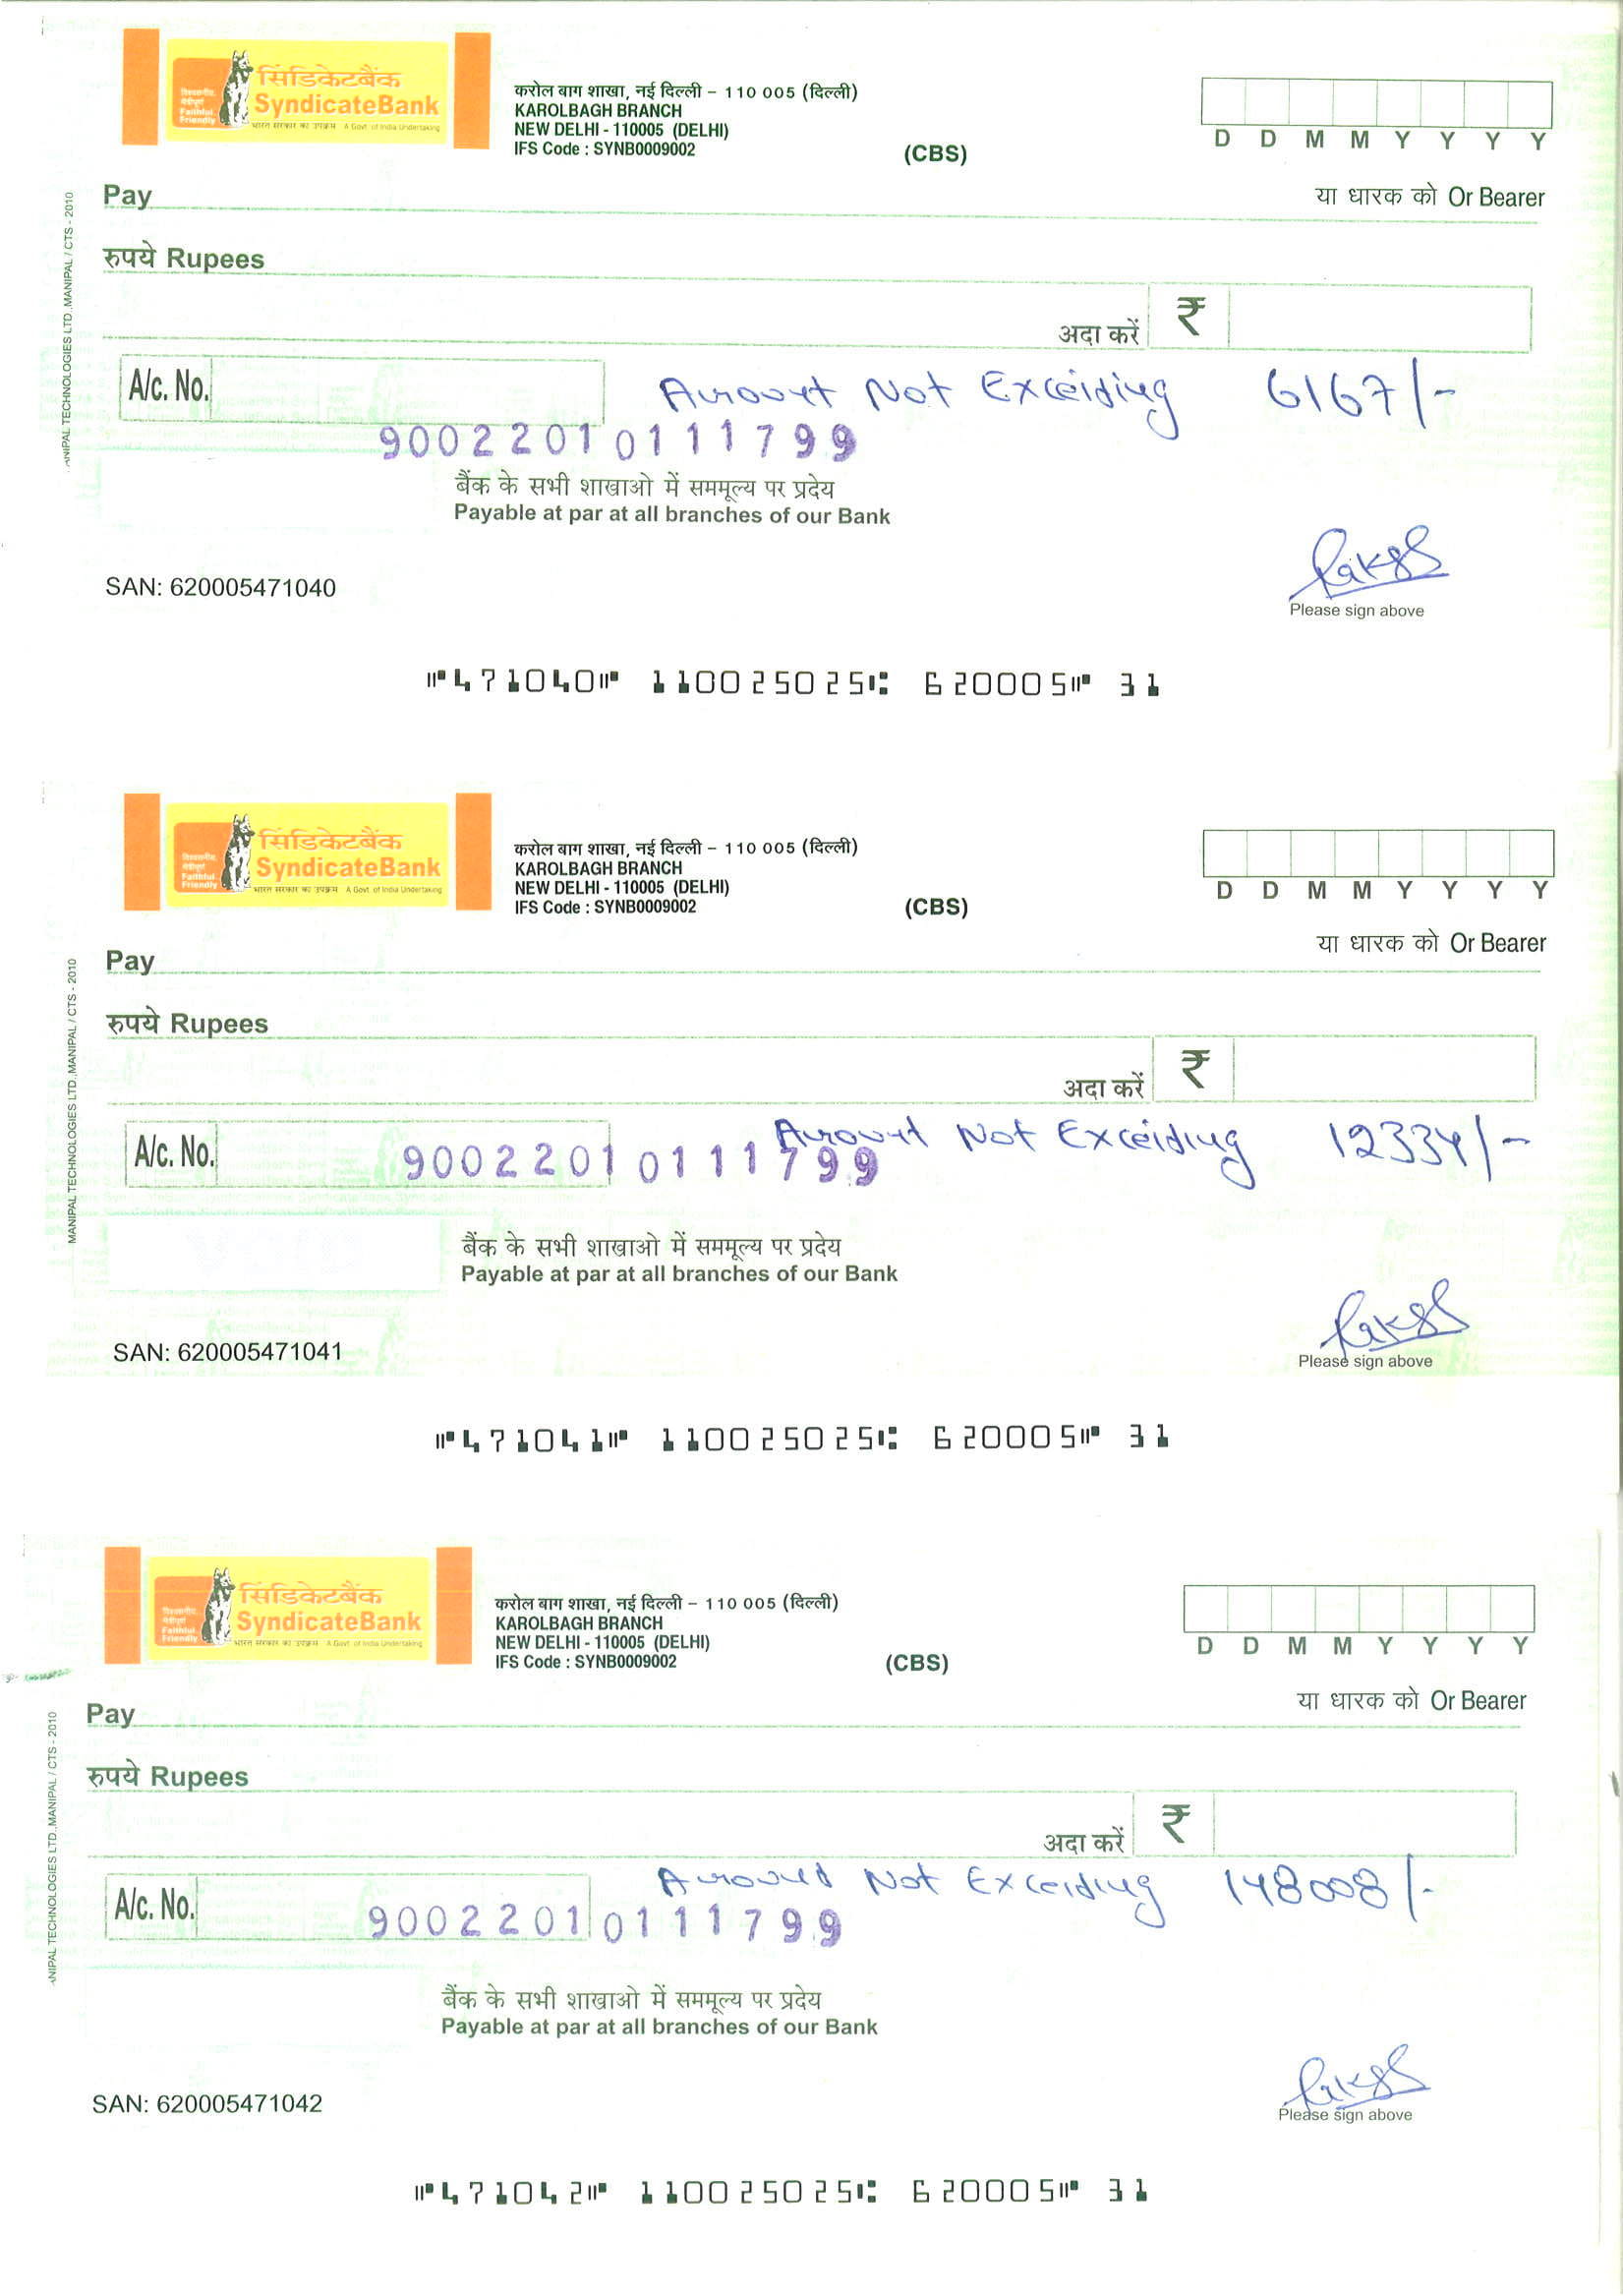 सिंडिकेटबैंक
SyndicateBank
Faithful
Friendly
भारत सरकार का उपक्रम A Govt. of India Undertaking
करोल बाग शाखा, नई दिल्ली – 110 005 (दिल्ली)
KAROLBAGH BRANCH
NEW DELHI - 110005 (DELHI)
IFS Code : SYNB0009002
(CBS)
D D M M Y Y Y Y
Pay
या धारक को Or Bearer
रुपये Rupees
अदा करें ₹
A/c. No.
Amount Not Exceiding 6167/-
90022010111799
बैंक के सभी शाखाओ में सममूल्य पर प्रदेय
Payable at par at all branches of our Bank
SAN: 620005471040
Please sign above
ANIPAL TECHNOLOGIES LTD.,MANIPAL / CTS - 2010
⑈471040⑈ 110025025⑆ 620005⑈ 31
सिंडिकेटबैंक
SyndicateBank
Faithful
Friendly
भारत सरकार का उपक्रम A Govt. of India Undertaking
करोल बाग शाखा, नई दिल्ली – 110 005 (दिल्ली)
KAROLBAGH BRANCH
NEW DELHI - 110005 (DELHI)
IFS Code : SYNB0009002
(CBS)
D D M M Y Y Y Y
Pay
या धारक को Or Bearer
रुपये Rupees
अदा करें ₹
A/c. No.
Amount Not Exceiding 12334/-
90022010111799
बैंक के सभी शाखाओ में सममूल्य पर प्रदेय
Payable at par at all branches of our Bank
SAN: 620005471041
Please sign above
MANIPAL TECHNOLOGIES LTD.,MANIPAL / CTS - 2010
⑈471041⑈ 110025025⑆ 620005⑈ 31
सिंडिकेटबैंक
SyndicateBank
Faithful
Friendly
भारत सरकार का उपक्रम A Govt. of India Undertaking
करोल बाग शाखा, नई दिल्ली – 110 005 (दिल्ली)
KAROLBAGH BRANCH
NEW DELHI - 110005 (DELHI)
IFS Code : SYNB0009002
(CBS)
D D M M Y Y Y Y
Pay
या धारक को Or Bearer
रुपये Rupees
अदा करें ₹
A/c. No.
Amount Not Exceiding 148008/-
90022010111799
बैंक के सभी शाखाओ में सममूल्य पर प्रदेय
Payable at par at all branches of our Bank
SAN: 620005471042
Please sign above
ANIPAL TECHNOLOGIES LTD.,MANIPAL / CTS - 2010
⑈471042⑈ 110025025⑆ 620005⑈ 31